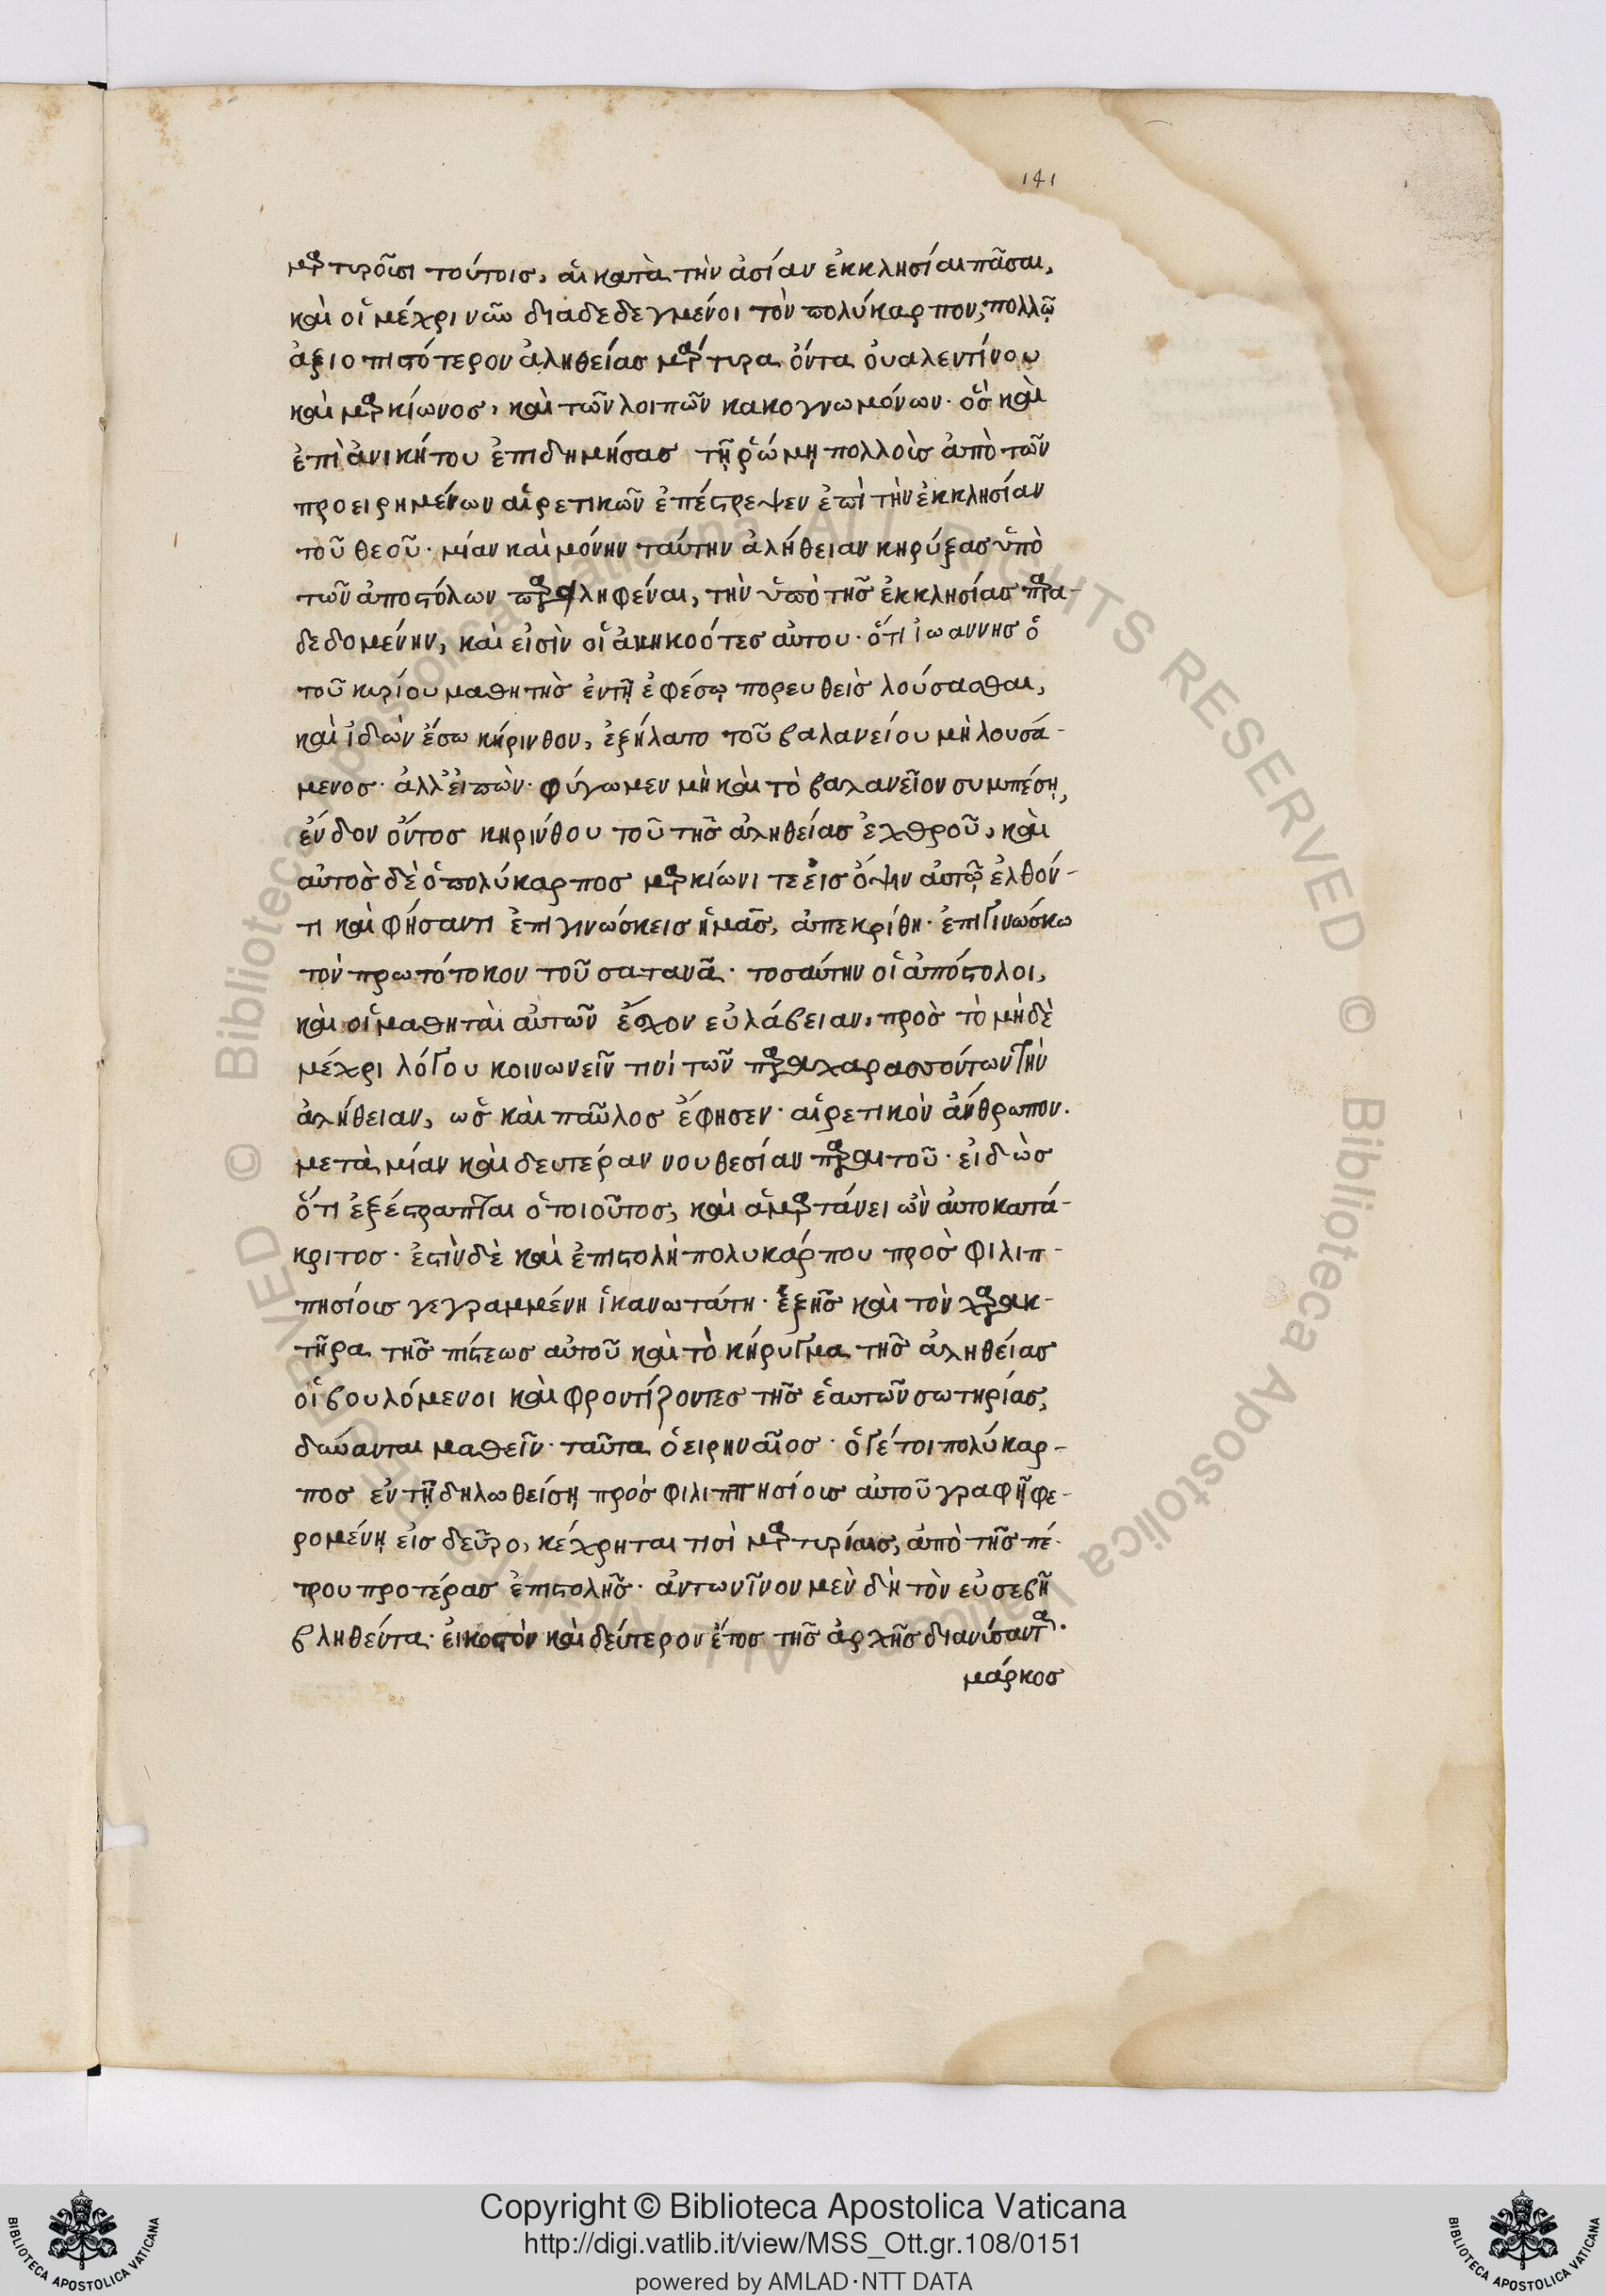 141
μαρτυροῦσι τούτοις, αἱ κατὰ τὴν ἀσίαν ἐκκλησίαι πᾶσαι,
καὶ οἱ μέχρι νῦν διαδεδεγμένοι τὸν πολύκαρπον, πολλῷ
ἀξιοπιστότερον ἀληθείας μάρτυρα ὄντα οὐαλεντίνου
καὶ μαρκίωνος, καὶ τῶν λοιπῶν κακογνωμόνων· ὃς καὶ
ἐπὶ ἀνικήτου ἐπιδημήσας τῇ ῥώμῃ πολλοὺς ἀπὸ τῶν
προειρημένων αἱρετικῶν ἐπέστρεψεν ἐπὶ τὴν ἐκκλησίαν
τοῦ θεοῦ· μίαν καὶ μόνην ταύτην ἀλήθειαν κηρύξας ὑπὸ
τῶν ἀποστόλων παρειληφέναι, τὴν ὑπὸ τῆς ἐκκλησίας παρα-
δεδομένην, καὶ εἰσὶν οἱ ἀκηκοότες αὐτου· ὅτι ἰωαννης ὁ
τοῦ κυρίου μαθητὴς ἐν τῇ ἐφέσῳ πορευθεὶς λούσασθαι,
καὶ ἰδὼν ἔσω κήρινθον, ἐξήλατο τοῦ βαλανείου μὴ λουσά-
μενος· ἀλλ' εἰπὼν· φύγωμεν μὴ καὶ τὸ βαλανεῖον συμπέσῃ,
ἔνδον ὄντος κηρίνθου τοῦ τῆς ἀληθείας ἐχθροῦ, καὶ
αὐτὸς δὲ ὁ πολύκαρπος μαρκίωνι τε εἰς ὄψιν αὐτῷ ἐλθόν-
τι καὶ φήσαντι ἐπιγινώσκεις ἡμᾶς, ἀπεκρίθη· ἐπιγινώσκω
τὸν πρωτότοκον τοῦ σατανᾶ· τοσαύτην οἱ ἀπόστολοι,
καὶ οἱ μαθηταὶ αὐτῶν ἔσχον εὐλάβειαν, πρὸς τὸ μὴ δὲ
μέχρι λόγου κοινωνεῖν τινὶ τῶν παραχαρασσόντων τὴν
ἀλήθειαν, ὡς καὶ παῦλος ἔφησεν· αἱρετικὸν ἄνθρωπον.
μετὰ μίαν καὶ δευτέραν νουθεσίαν παραιτοῦ· εἰδὼς
ὅτι ἐξέστραπται ὁ τοιοῦτος, καὶ ἁμαρτάνει ὢν αὐτοκατά-
κριτος· ἐστὶν δὲ καὶ ἐπιστολὴ πολυκάρπου πρὸς φιλιπ-
πησίους γεγραμμένη ἱκανωτάτη· ἐξ ἧς καὶ τὸν χαρακ-
τῆρα τῆς πίστεως αὐτοῦ καὶ τὸ κήρυγμα τῆς ἀληθείας
οἱ βουλόμενοι καὶ φροντίζοντες τῆς ἑαυτῶν σωτηρίας,
δύνανται μαθεῖν· ταῦτα ὁ εἰρηναῖος· ὁ γέ τοι πολύκαρ-
πος ἐν τῇ δηλωθείσῃ πρὸς φιλιππησίους αὐτοῦ γραφῇ φε-
ρομένῃ εἰς δεῦρο, κέχρηται τισὶ μαρτυρίαις, ἀπὸ τῆς πέ-
τρου προτέρας ἐπιστολῆς· ἀντωνῖνον μὲν δὴ τὸν εὐσεβῆ
βληθέντα· εἰκοστὸν καὶ δεύτερον ἔτος τῆς ἀρχῆς διανύσαντα·
μάρκος
Copyright © Biblioteca Apostolica Vaticana
http://digi.vatlib.it/view/MSS_Ott.gr.108/0151
powered by AMLAD·NTT DATA